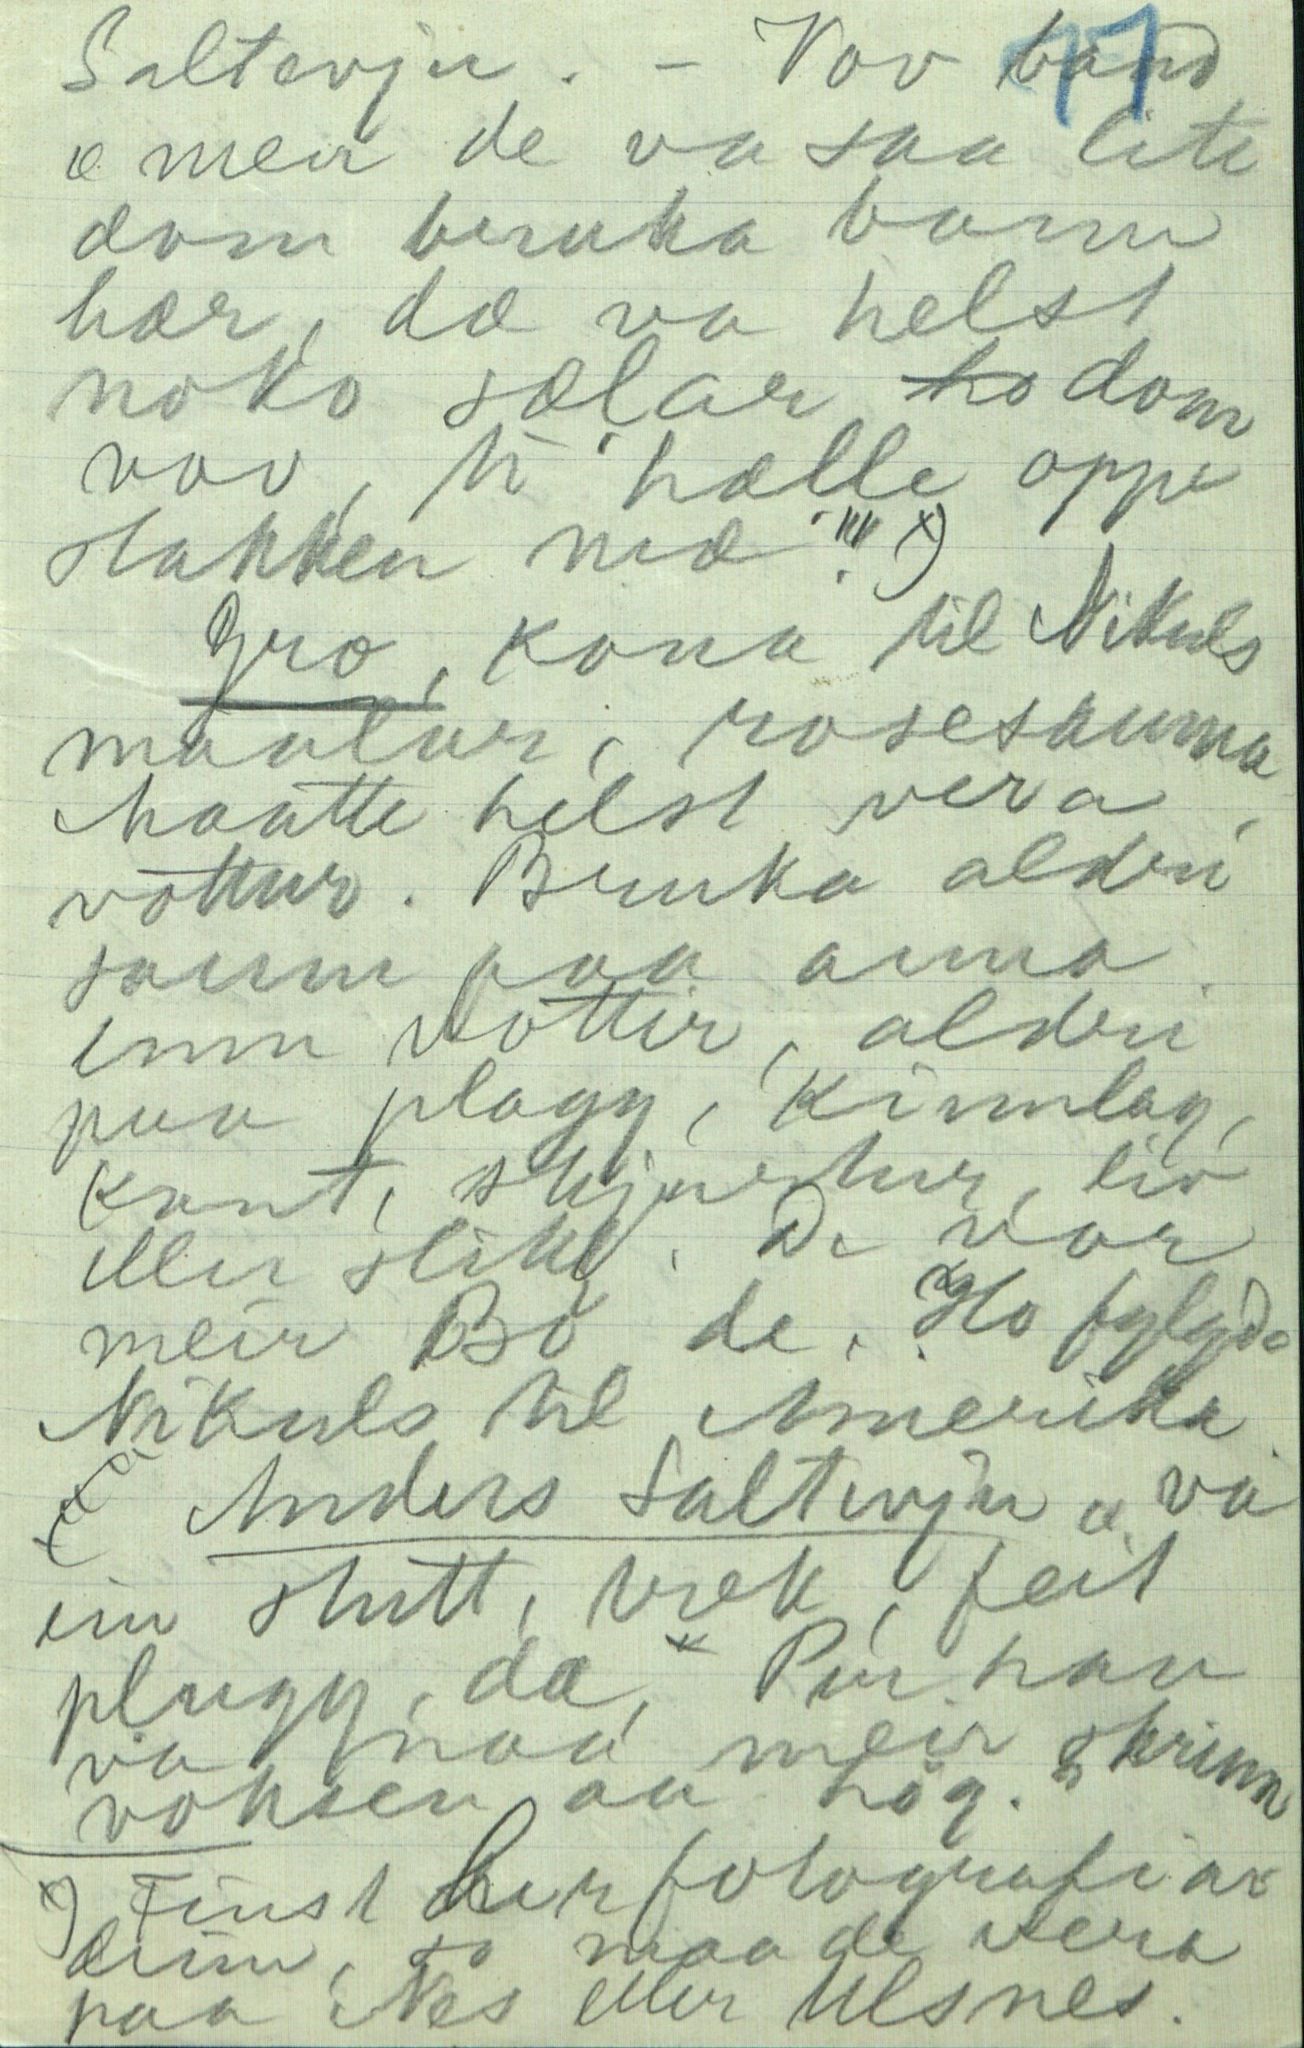 Saltevju. - Vov band 77
o meir de va saa lite
dom bruka barn
hær, dæ va helst
noko sælar ho dom
vov, ti "hælle oppe
stakken mæ"!!! x)
Gro, kona til Nikuls
maalar, rosesauma
maatte helst vera,
vøttur. Bruka aldri
saum paa anna
enn vøttir, aldri
paa plagg, kinnlag,
kant, skjurtur, liv
eller slikt. De var
meir Bø de. Ho fylgde
Nikuls til Amerika.
Anders Saltevju o. va
ein stutt, brek, feit
plugg, dæ, x Pær han
va naa meir skrinn
voksen aa høg.
x) Finst her fotografi av
deim, so maa de vera
paa Nes eller Ulsnes.